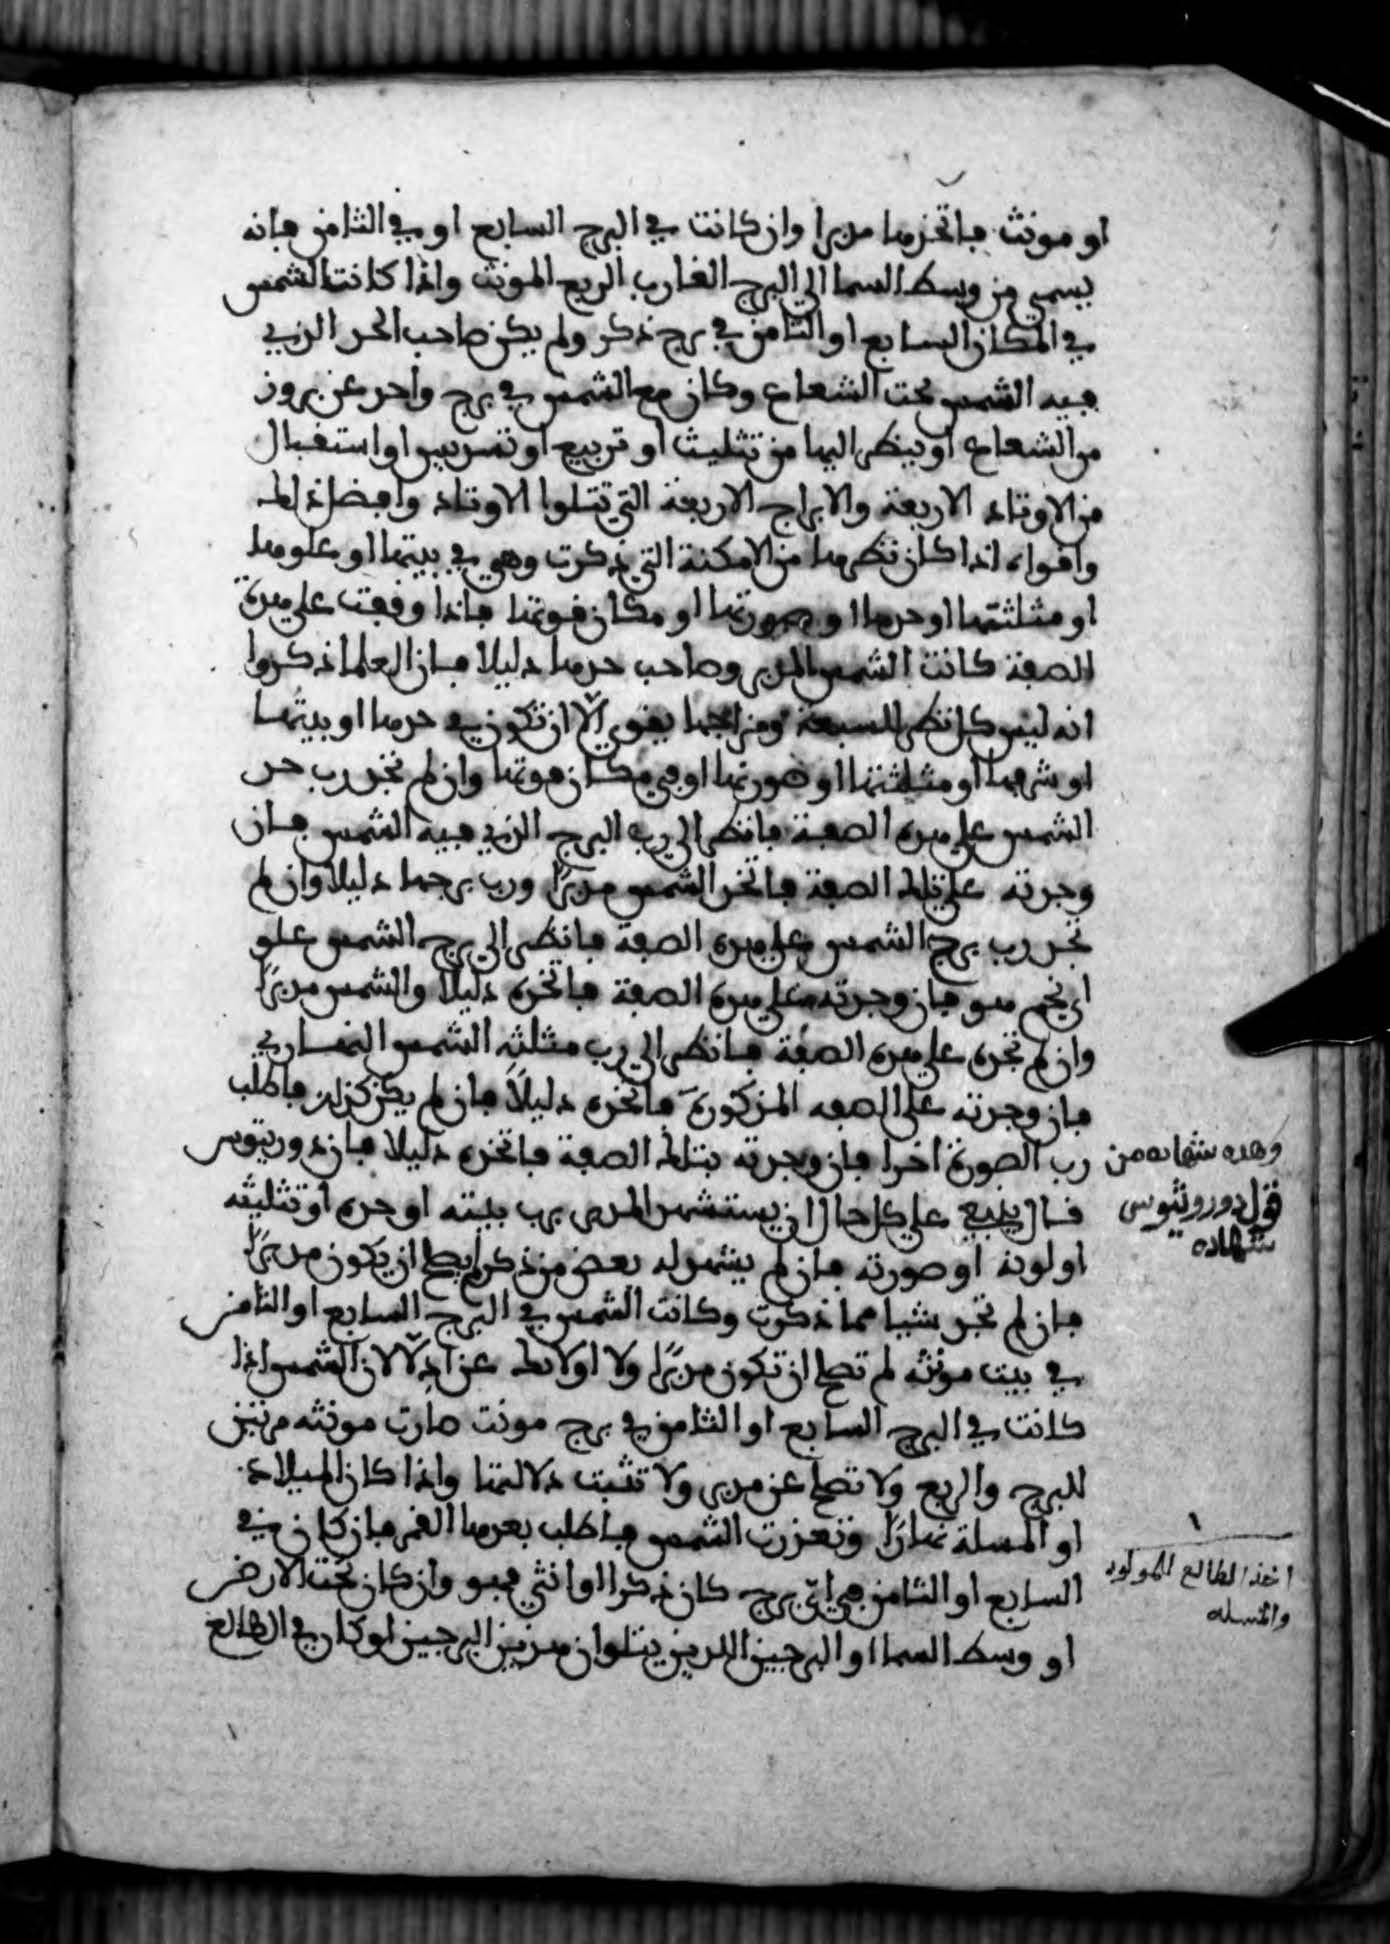 او مونث فاتخذها مدبرا وان كانت في البرج السابع او في الثامن فانه
يسمى من وسط السما الي البرج الغارب الربع المونث واذا كانت الشمس
في المكان السابع او الثامن في برج ذكر ولم يكن صاحب الحد الذي
فيه الشمس تحت الشعاع وكان مع الشمس في برج واحد عن بروز
من الشعاع او ينظر اليها من تثليث او تربيع او تسديس او استقبال
من الاوتاد الاربعة والابراج الاربعة التي تتلوا الاوتاد وافضل ذلك
واقواه اذا كان نظرها من الامكنة التي ذكرت وهي في بيتها او علوها
او مثلثتها او حدها او صورتها او مكان قوتها فاذا وقعت علي هذه
الصفة كانت الشمس المدبر وصاحب حدها دليلا فان العلما ذكروا
انه ليس كل نظر السبعة ومزاجها يقوي الا ان تكون في حدها او بيتها
او شرفها او مثلثتها او صورتها او في مكان قوتها وان لم تجد رب حد
الشمس علي هذه الصفة فانظر الي رب البرج الذي فيه الشمس فان
وجدته علي تلك الصفة فاتخذ الشمس مدبرًا ورب برجها دليلا وان لم
تجد رب برج الشمس علي هذه الصفة فانظر الي برج الشمس علو
اي نجم هو فان وجدته علي هذه الصفة فاتخذه دليلا والشمس مدبرًا
وان لم تجده علي هذه الصفة فانظر الي رب مثلثه الشمس النهاري
فان وجدته علي الصفه المذكورة فاتخذه دليلاً فان لم يكن كذلك فاطلب
رب الصورة اخرا فان وجدته بتلك الصفة فاتخذه دليلا فان دوريتوس
قال ينبغي علي كل حال ان يستشهد المدبر برب بيته او حده او تثليثه
او لونه او صورته فان لم يشهد له بعض من ذكر لم يصلح ان يكون مدبرًا
فان لم تجد شيا مما ذكرت وكانت الشمس في البرج السابع او الثامن
في بيت مونثه لم تصلح ان تكون مدبرًا ولا لان الشمس اذا
كانت في البرج السابع او الثامن في برج مونث صارت مونثه مرتين
للبرج والربع ولا تصلح عن مدبر ولا تثبت دلالتها واذا كان الميلاد
او المسلة نهارًا وتعزرت الشمس فاطلب بعدها القمر فان كان في
السابع او الثامن في اي برج كان ذكرا او انثي فهو وان كان تحت الارض
او وسط السما او البرجين اللذين يتلوان هذين البرجين او كان في الطالع
وهده شهاده من
قول دوروثيوس
شهاده
اخذ الطالع للمولود
والمسله